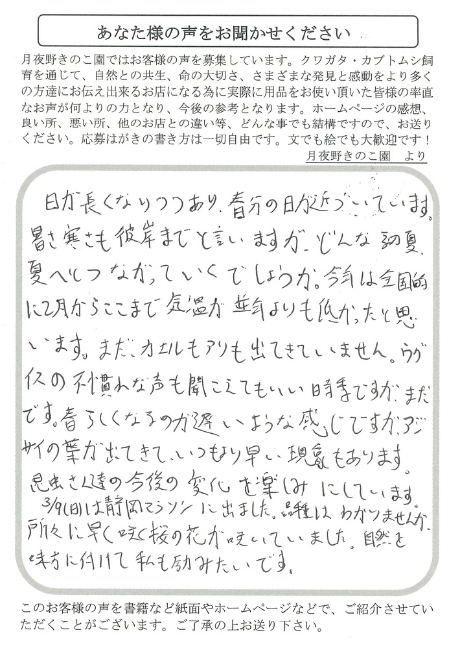 あなた様の声をお聞かせください
月夜野きのこ園ではお客様の声を募集しています。クワガタ・カブトムシ飼
育を通じて、自然との共生、命の大切さ、さまざまな発見と感動をより多く
の方達にお伝え出来るお店になる為に実際に用品をお使い頂いた皆様の率直
なお声が何よりの力となり、今後の参考となります。ホームページの感想、
良い所、悪い所、他のお店との違い等、どんな事でも結構ですので、お送り
ください。応募はがきの書き方は一切自由です。文でも絵でも大歓迎です！
月夜野きのこ園　より
日が長くなりつつあり、春分の日が近づいています。
暑さ寒さも彼岸までと言いますが、どんな初夏、
夏へとつながっていくでしょうか。今年は全国的
に2月からここまで気温が並年よりも低かったと思
います。まだ、カエルもアリも出てきていません。ウグ
イスの不慣れな声も聞こえてもいい時季ですが、まだ
です。春らしくなるのが遅いような感じですが、アジ
サイの葉が出てきて、いつもより早い現象もあります。
昆虫さん達の今後の変化を楽しみにしています。
3/9(日)は静岡マラソンに出ました。品種はわかりませんが、
所々に早く咲く桜の花が咲いていました。自然を
味方に付けて私も励みたいです。
このお客様の声を書籍など紙面やホームページなどで、ご紹介させてい
ただくことがございます。ご了承の上お送り下さい。